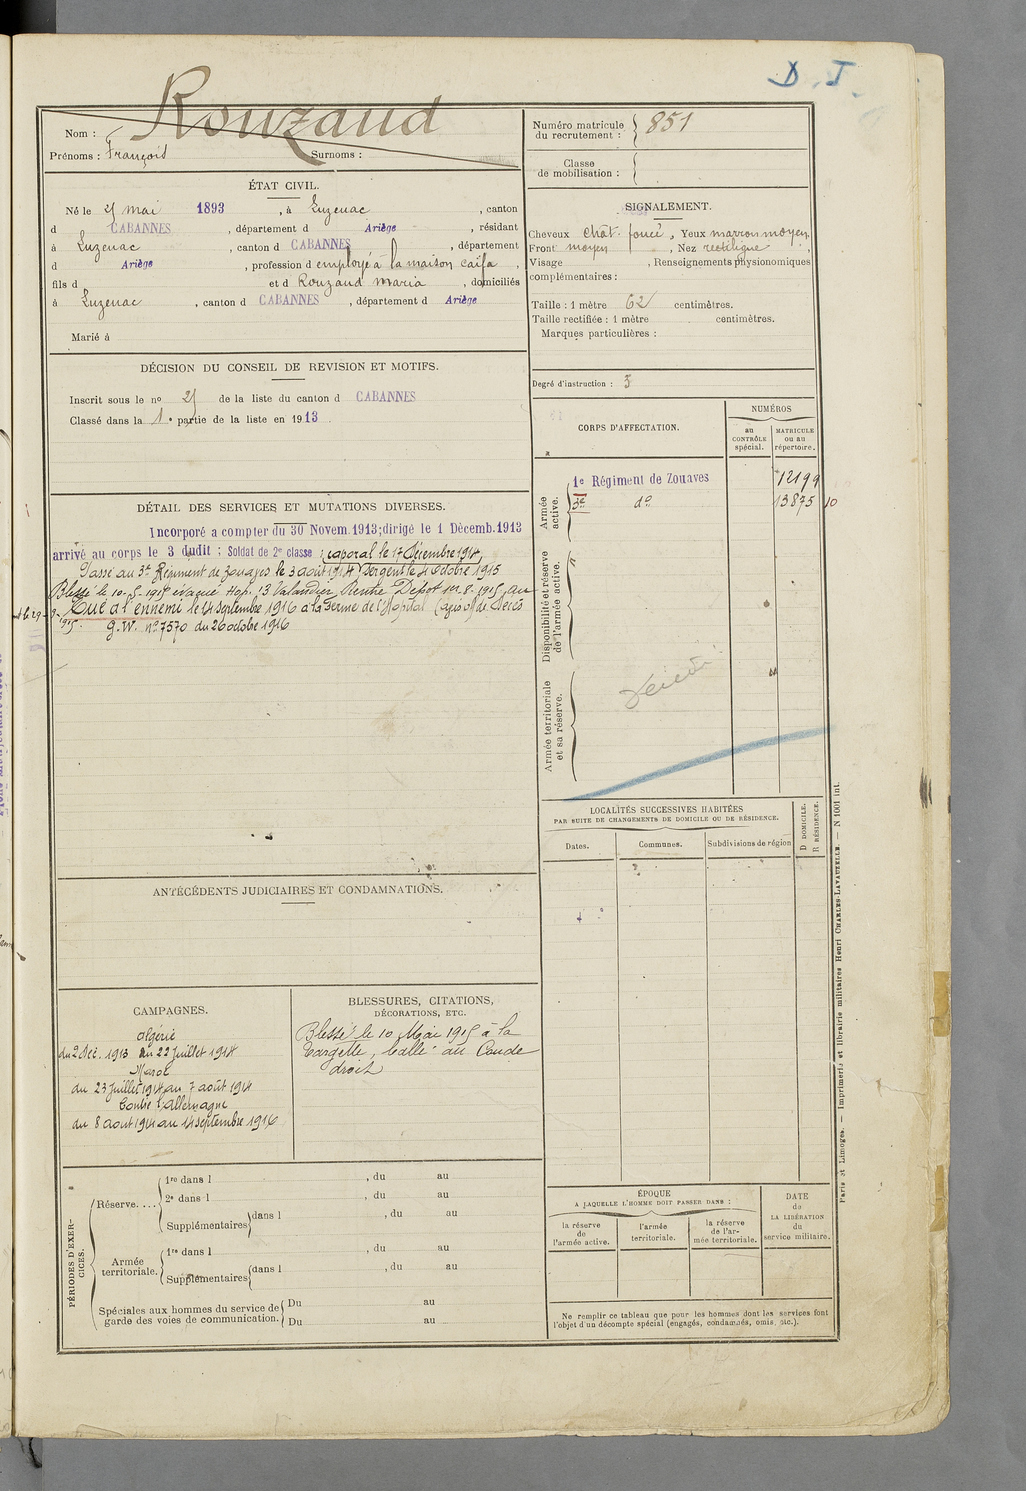 D. I.
Rouzaud
Nom :
Prénoms : François Surnoms :
Numéro matricule du recrutement : 851
Classe de mobilisation :
ÉTAT CIVIL.
Né le 25 mai 1893, à Luzenac, canton
d CABANNES, département d Ariège, résidant
à Luzenac, canton d CABANNES, département
d Ariège, profession d employé à la maison caïfa,
fils d et d Rouzaud Maria, domiciliés
à Luzenac, canton d CABANNES, département d Ariège
Marié à
SIGNALEMENT.
Cheveux chât. foncé, Yeux marron moyen,
Front moyen, Nez rectiligne,
Visage , Renseignements physionomiques
complémentaires :
Taille : 1 mètre 62 centimètres.
Taille rectifiée : 1 mètre centimètres.
Marques particulières :
Degré d'instruction : 3
DÉCISION DU CONSEIL DE REVISION ET MOTIFS.
Inscrit sous le no 25 de la liste du canton d CABANNES
Classé dans la 1e partie de la liste en 1913.
DÉTAIL DES SERVICES ET MUTATIONS DIVERSES.
Incorporé a compter du 30 Novem. 1913; dirigé le 1 Décemb. 1913
arrivé au corps le 3 dudit ; Soldat de 2e classe ; caporal le 17 Décembre 1914,
Passé au 3e Régiment de zouaves le 3 août 1914 Sergent le 4 octobre 1915
Blessé le 10-5-1915 évacué Hop. 13 Rentré Dépôt 1er-8-1915, au
Tué à l'ennemi le 14 septembre 1916 à la Ferme de l'Hôpital de Décès
G.W. no 7570 du 26 octobre 1916
CORPS D'AFFECTATION.
NUMÉROS
au CONTRÔLE spécial.
MATRICULE ou au répertoire.
Armée active.
1e Régiment de Zouaves 12199
3e do 13875 10
Disponibilité et réserve de l'armée active.
Armée territoriale et sa réserve.
LOCALITÉS SUCCESSIVES HABITÉES
PAR SUITE DE CHANGEMENTS DE DOMICILE OU DE RÉSIDENCE.
Dates. Communes. Subdivisions de région
D DOMICILE.
R RÉSIDENCE.
ANTÉCÉDENTS JUDICIAIRES ET CONDAMNATIONS.
CAMPAGNES.
Algérie
du 2 Déc. 1913 au 22 Juillet 1914
Maroc
du 23 Juillet 1914 au 7 août 1914
Contre l'Allemagne
du 8 aout 1914 au 14 septembre 1916
BLESSURES, CITATIONS,
DÉCORATIONS, ETC.
Blessé le 10 Mai 1915 à la
Targette, balle au Coude
droit
PÉRIODES D'EXERCICES.
Réserve....
1re dans l , du au
2e dans l , du au
Supplémentaires dans l , du au
Armée territoriale.
1re dans l , du au
Supplémentaires dans l , du au
Spéciales aux hommes du service de garde des voies de communication.
Du au
Du au
ÉPOQUE
A LAQUELLE L'HOMME DOIT PASSER DANS :
la réserve de l'armée active.
l'armée territoriale.
la réserve de l'armée territoriale.
DATE de LA LIBÉRATION du service militaire.
Ne remplir ce tableau que pour les hommes dont les services font
l'objet d'un décompte spécial (engagés, condamnés, omis, etc.).
Paris et Limoges. — Imprimerie et librairie militaires Henri CHARLES-LAVAUZELLE. — N 1001 int.